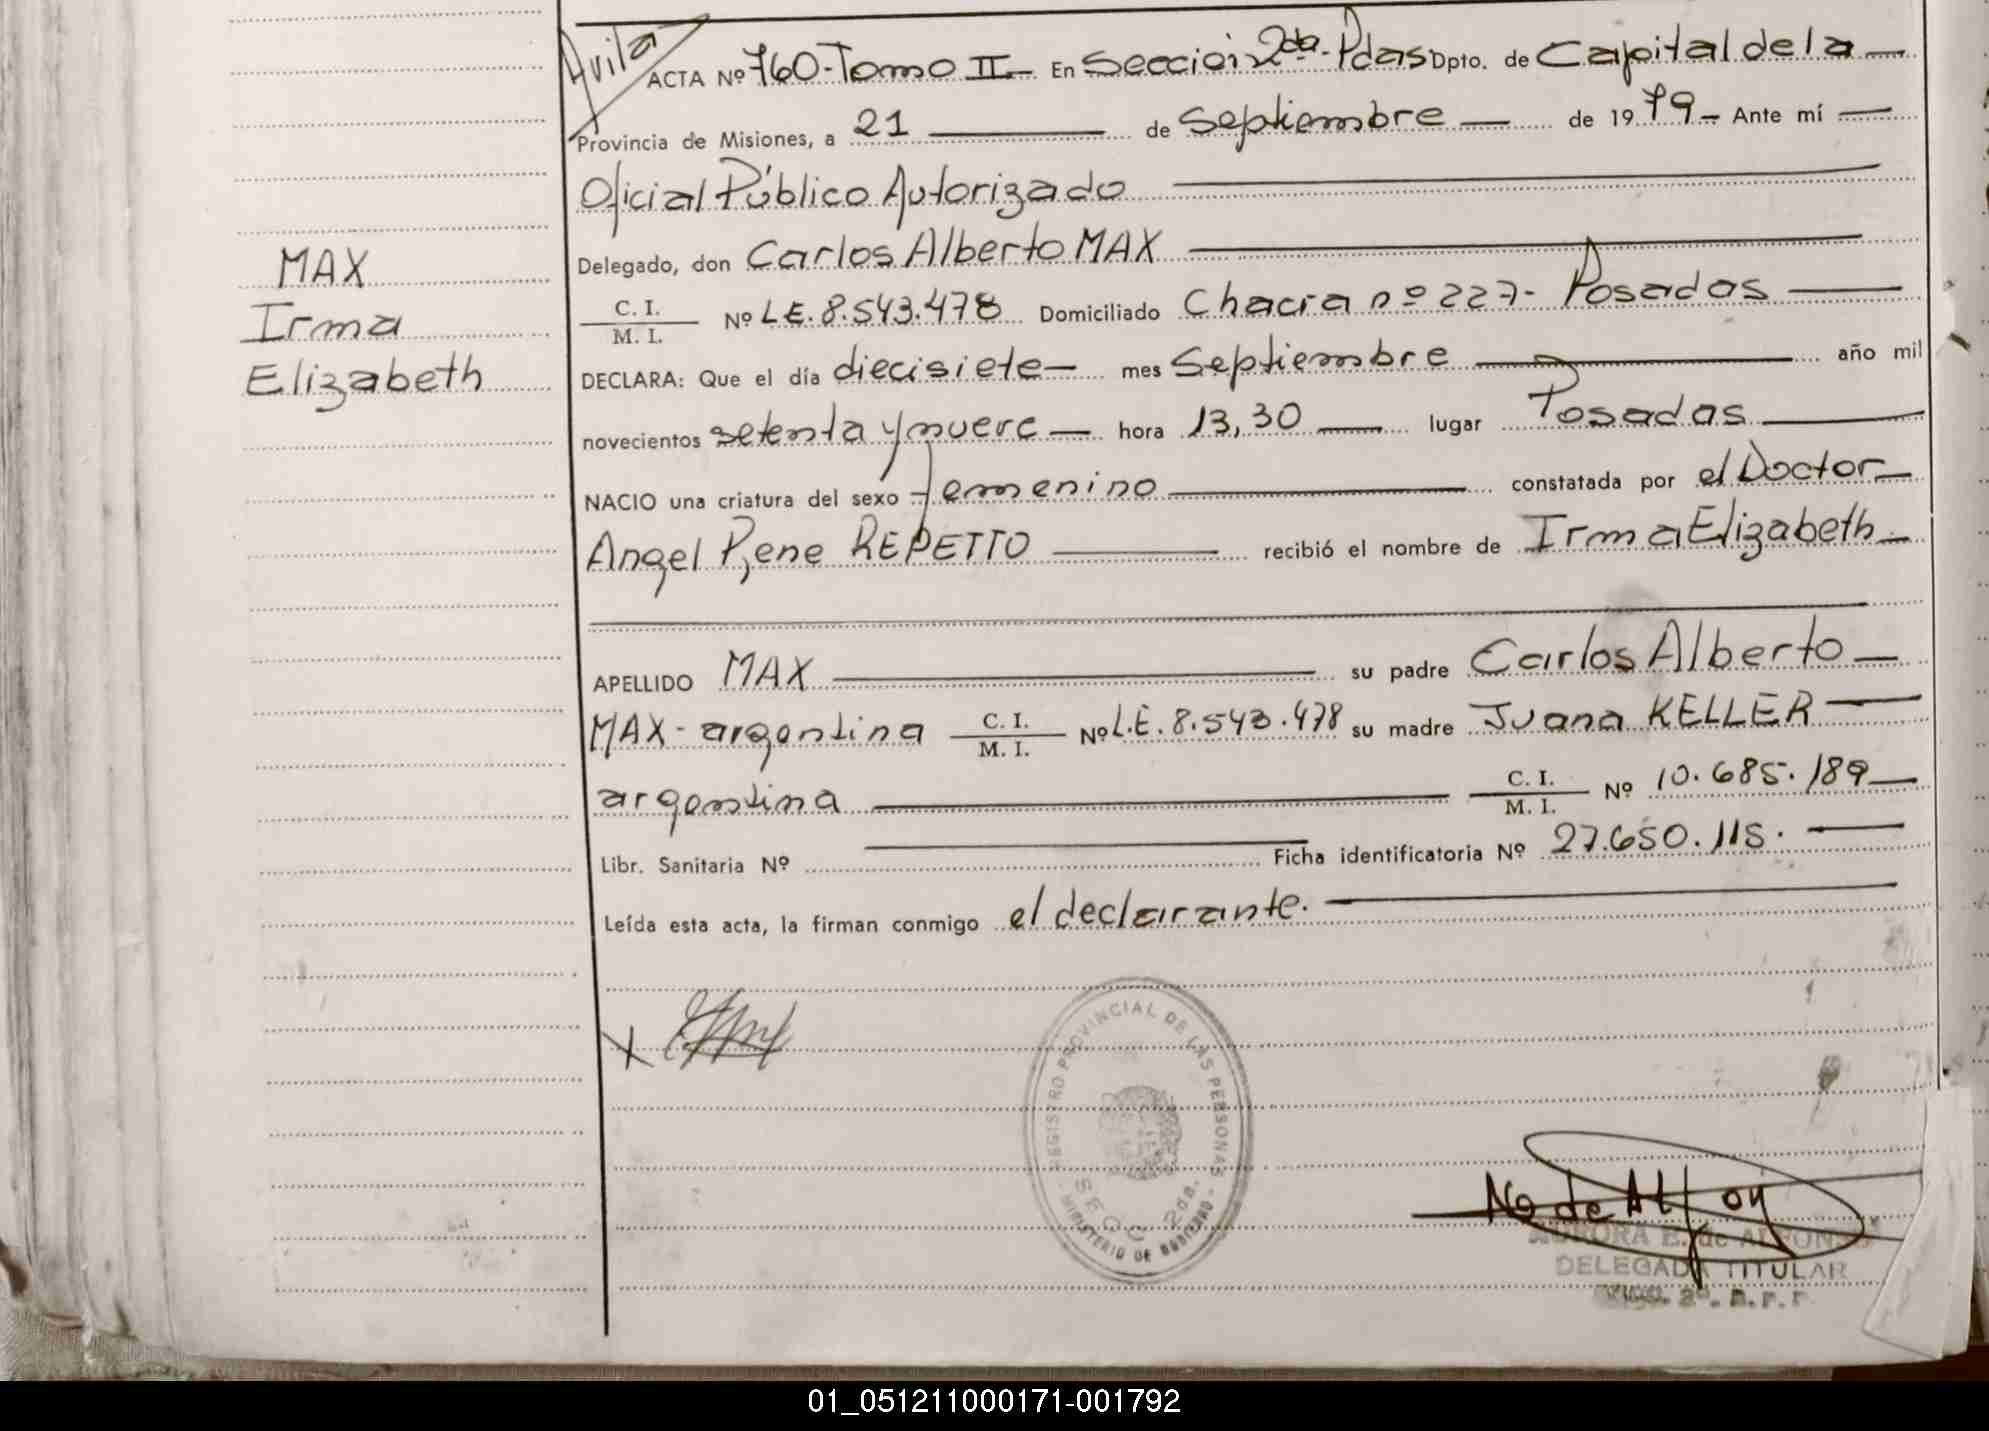 Avila
ACTA Nº 760-Tomo II- En Sección 2da-Pdas Dpto. de Capital de la
Provincia de Misiones, a 21 de Septiembre de 1979- Ante mí
Oficial Público Autorizado
Delegado, don Carlos Alberto MAX
C. I.
M. I. Nº L.E. 8.543.478 Domiciliado Chacra nº 227- Posadas
DECLARA: Que el día diecisiete- mes Septiembre año mil
novecientos setenta y nueve hora 13,30 lugar Posadas
NACIO una criatura del sexo femenino constatada por el Doctor
Angel Rene REPETTO recibió el nombre de Irma Elizabeth
MAX
Irma
Elizabeth
APELLIDO MAX su padre Carlos Alberto
MAX- argentina C. I. M. I. Nº L.E. 8.543.478 su madre Juana KELLER
argentina C. I. M. I. Nº 10.685.189
Libr. Sanitaria Nº Ficha identificatoria Nº 27.650.115.
Leída esta acta, la firman conmigo el declarante.
X
REGISTRO PROVINCIAL DE LAS PERSONAS
SECC. 2da.
MINISTERIO DE GOBIERNO
AURORA E. de ALFONSO
DELEGADA TITULAR
01_051211000171-001792